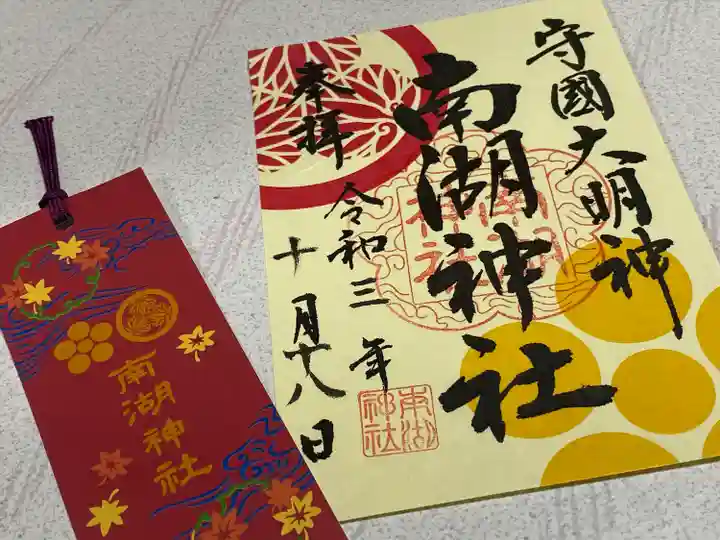 守國大明神
南湖神社
奉拝
令和三年
十月十八日
南湖神社
南湖神社
南湖神社